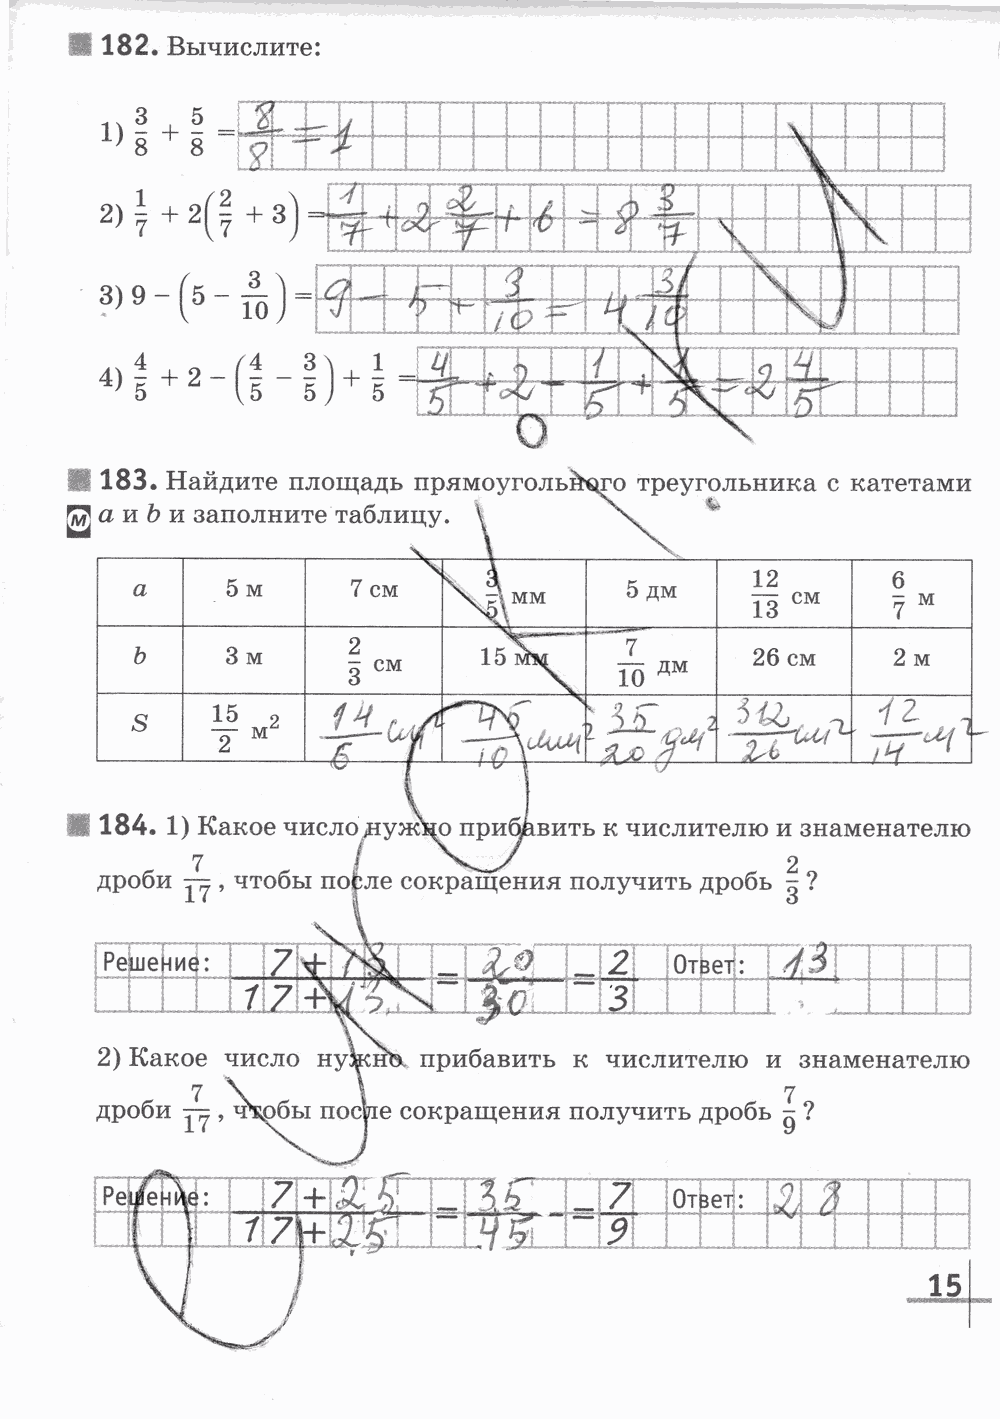 182. Вычислите:
1) 3/8 + 5/8 = 8/8 = 1
2) 1/7 + 2(2/7 + 3) = 1/7 + 2 2/7 + 6 = 8 3/7
3) 9 − (5 − 3/10) = 9 − 5 + 3/10 = 4 3/10
4) 4/5 + 2 − (4/5 − 3/5) + 1/5 = 4/5 + 2 − 1/5 + 1/5 = 2 4/5
183. Найдите площадь прямоугольного треугольника с катетами
м a и b и заполните таблицу.
a 5 м 7 см 3/5 мм 5 дм 12/13 см 6/7 м
b 3 м 2/3 см 15 мм 7/10 дм 26 см 2 м
S 15/2 м² 14/6 см² 45/10 мм² 35/20 дм² 312/26 см² 12/14 м²
184. 1) Какое число нужно прибавить к числителю и знаменателю
дроби 7/17, чтобы после сокращения получить дробь 2/3?
Решение: 7 + 13/17 + 13 = 20/30 = 2/3 Ответ: 13
2) Какое число нужно прибавить к числителю и знаменателю
дроби 7/17, чтобы после сокращения получить дробь 7/9?
Решение: 7 + 25/17 + 25 = 35/45 = 7/9 Ответ: 28
15